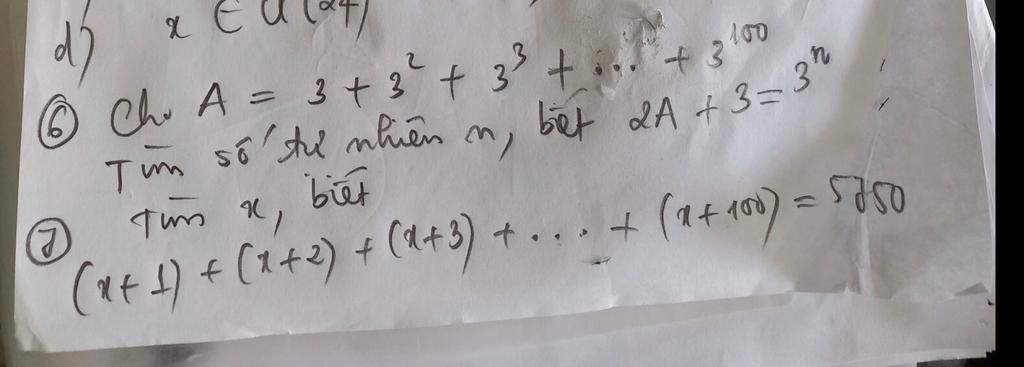 d) x ∈ Ư(24)
⑥ Cho A = 3 + 3² + 3³ + ... + 3¹⁰⁰
Tìm số tự nhiên n, biết 2A + 3 = 3ⁿ
⑦ Tìm x, biết
(x+1) + (x+2) + (x+3) + ... + (x+100) = 5750